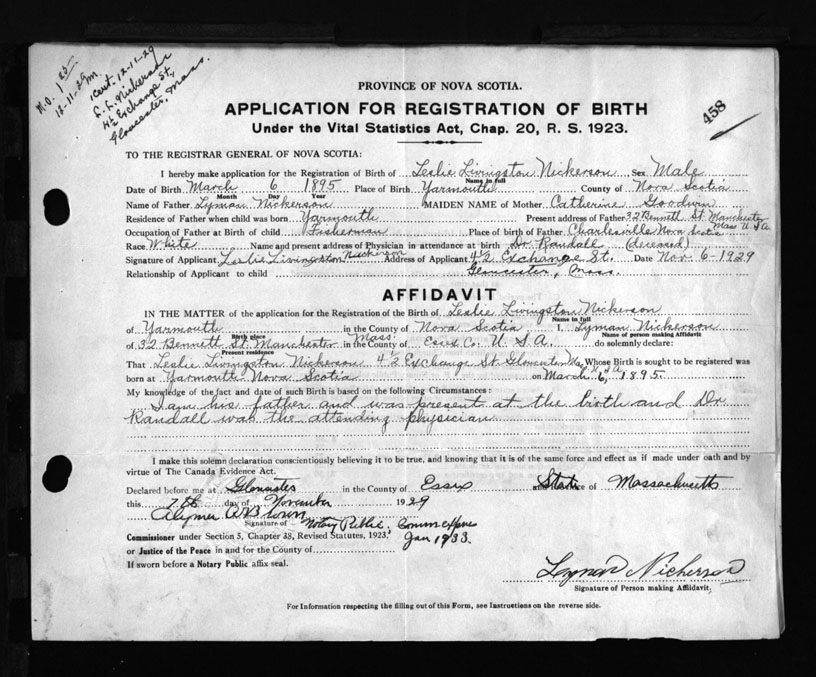 M.O. 1
12-11-29
Cert. 12-11-29
L. L. Nickerson
4½ Exchange St,
Gloucester, Mass.
458
PROVINCE OF NOVA SCOTIA.
APPLICATION FOR REGISTRATION OF BIRTH
Under the Vital Statistics Act, Chap. 20, R. S. 1923.
TO THE REGISTRAR GENERAL OF NOVA SCOTIA:
I hereby make application for the Registration of Birth of Leslie Livingston Nickerson Sex Male
Name in full
Date of Birth March 6 1895 Place of Birth Yarmouth County of Nova Scotia
Month Day Year
Name of Father Lyman Nickerson MAIDEN NAME of Mother Catherine Goodwin
Residence of Father when child was born Yarmouth Present address of Father 32 Bennett St. Manchester
Mass U.S.A
Occupation of Father at Birth of child Fisherman Place of birth of Father Charlesville Nova Scotia
Race White Name and present address of Physician in attendance at birth Dr. Randall (deceased)
Signature of Applicant Leslie Livingston Nickerson Address of Applicant 4½ Exchange St. Date Nov. 6-1929
Relationship of Applicant to child Gloucester, Mass.
AFFIDAVIT
IN THE MATTER of the application for the Registration of the Birth of Leslie Livingston Nickerson
Name in full
of Yarmouth in the County of Nova Scotia I, Lyman Nickerson
Birth place Name of person making Affidavit
of 32 Bennett St. Manchester Mass. in the County of Essex Co. U.S.A. do solemnly declare:
Present residence
That Leslie Livingston Nickerson 4½ Exchange St Gloucester Mas U.S.A Whose Birth is sought to be registered was
born at Yarmouth Nova Scotia on March 6, 1895.
My knowledge of the fact and date of such Birth is based on the following Circumstances:
I am his father and was present at the birth and Dr.
Randall was the attending physician
I make this solemn declaration conscientiously believing it to be true, and knowing that it is of the same force and effect as if made under oath and by
virtue of The Canada Evidence Act.
Declared before me at Gloucester in the County of Essex State of Massachusetts
this 7th day of November 1929
Brown
Signature of Notary Public. Comm expires
Commissioner under Section 3, Chapter 38, Revised Statutes, 1923, Jan 1933.
or Justice of the Peace in and for the County of
If sworn before a Notary Public affix seal.
Lyman Nickerson
Signature of Person making Affidavit,
For Information respecting the filling out of this Form, see Instructions on the reverse side.